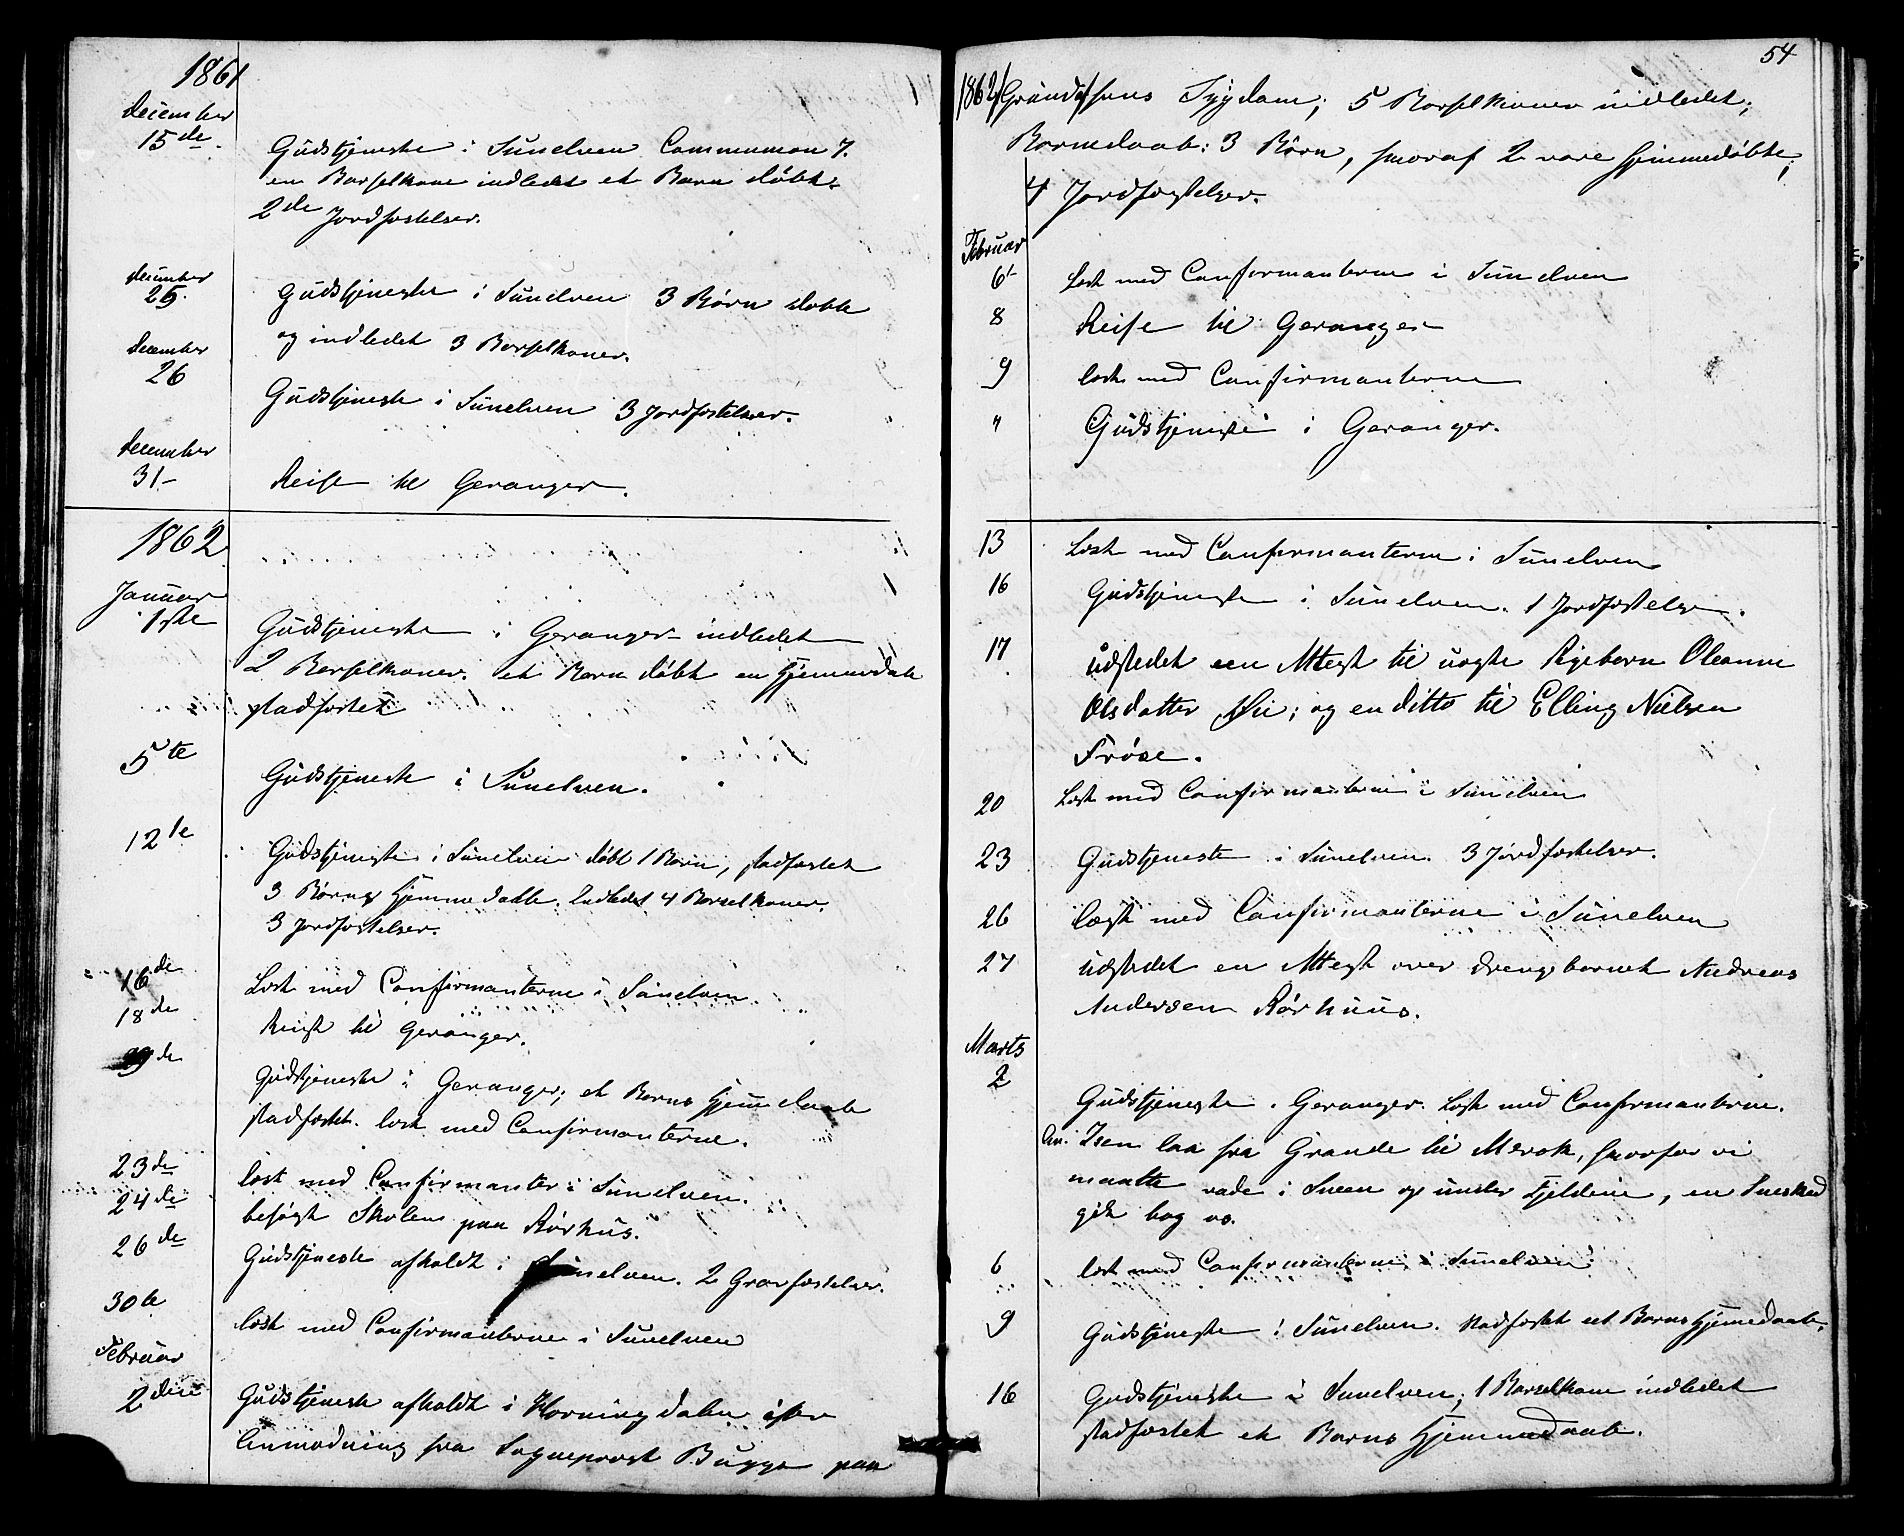 1861
December
15de Gudstjeneste i Sunelven Communion 7.
en Barselkone indledet et Barn døbt.
2de Jordfæstelser.
December
25. Gudstjeneste i Sunelven 3 Børn døbte
og indledet 3 Barselkoner.
December
26 Gudstjeneste i Sunelven 3 Jordfæstelser.
December
31- Reise til Geranger.
1862
Januar
1ste Gudstjeneste i Geranger indledet
2 Barselkoner. et Barn døbt en Hjemmedaab
stadfæstet
5te Gudstjeneste i Sunelven.
12te Gudstjeneste i Sunelven døbt 1 Barn, stadfæstet
3 Børns Hjemmedaab. Indledet 4 Barselkoner.
3 Jordfæstelser.
16de Læst med Confirmanterne i Sunelven
18de Reist til Geranger.
19de Gudstjeneste i Geranger; et Barns Hjemdaab
stadfæstet. læst med Confirmanterne.
23de læst med Confirmanter i Sunelven.
24de besøgt Skolen paa Rørhus.
26de Gudstjeneste afholdt i Sunelven. 2 Gravfæstelser.
30te læst med Confirmanterne i Sunelven
Februar
2den Gudstjeneste afholdt i Horningdalen efter
Anmodning fra Sogneprest Bugge paa
54
1862 Grund af hans Sygdom; 5 Barselkoner indledet;
Barnedaab: 3 Børn, hvoraf 2 vare hjemmedøbte;
4 Jordfæstelser.
Februar
6 Læst med Confirmanterne i Sunelven
8 Reise til Geranger
9 læst med Confirmanterne
" Gudstjeneste i Geranger.
13 Læst med Confirmanterne i Sunelven
16 Gudstjeneste i Sunelven. 1 Jordfæstelse.
17 udstedet een Attest til uægte Pigebarn Oleanne
Olsdatter Øie; og en ditto til Elling Nielsen
Frøse.
20 Læst med Confirmanterne i Sunelven
23 Gudstjeneste i Sunelven. 3 Jordfæstelser.
26 læst med Confirmanterne i Sunelven
27 udstedet en Attest over drengebarnet Andreas
Andersen Rørhuus.
Marts
2 Gudstjeneste i Geranger. Læst med Confirmanterne.
An. Isen laa fra Grande til Merok, hvorfor vi
maatte vade i Sneen og under Fjeldene, en Sneskred
gik bag os.
6 læst med Confirmanterne i Sunelven
9 Gudstjeneste i Sunelven. stadfæstet et Barns Hjemedaab.
16 Gudstjeneste i Sunelven; 1 Barselkone indledet
stadfæstet et Barns Hjemmedaab.